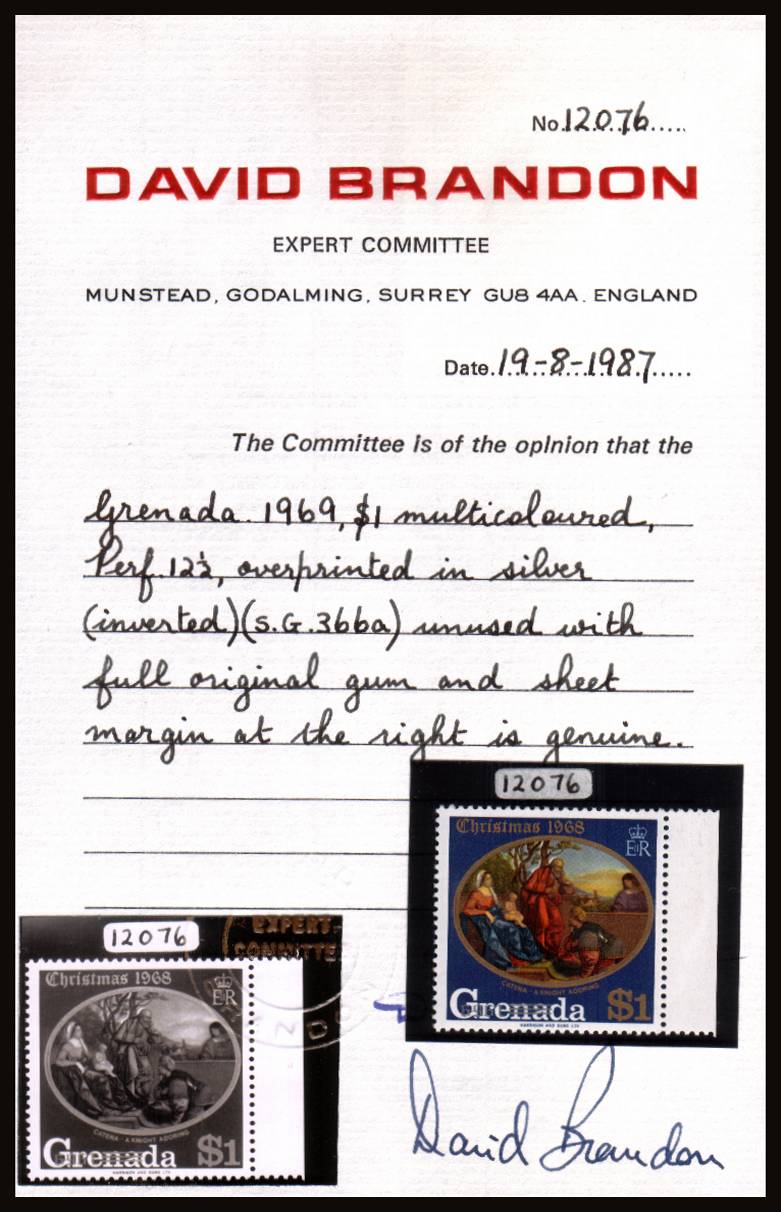 No. 12076
DAVID BRANDON
EXPERT COMMITTEE
MUNSTEAD, GODALMING, SURREY GU8 4AA. ENGLAND
Date. 19-8-1987
The Committee is of the opinion that the
Grenada. 1969, $1 multicoloured,
Perf. 12½, overprinted in silver
(inverted)(S.G.366a) unused with
full original gum and sheet
margin at the right is genuine.
12076
Christmas 1968
EIIR
CATENA - A KNIGHT ADORING
Grenada $1
HARRISON AND SONS LTD
12076
EXPERT
COMMITTEE
Christmas 1968
EIIR
CATENA - A KNIGHT ADORING
Grenada $1
HARRISON AND SONS LTD
David Brandon